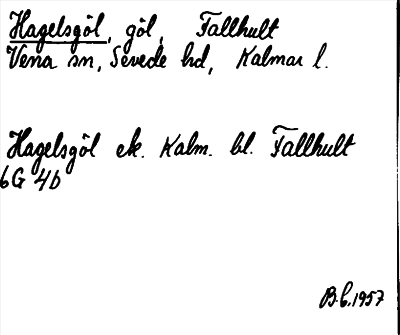 Hagelsgöl, göl, Fallhult
Vena sn, Sevede hd, Kalmar l.
Hagelsgöl ek. Kalm. bl. Fallhult
6G 4b
B.L. 1957